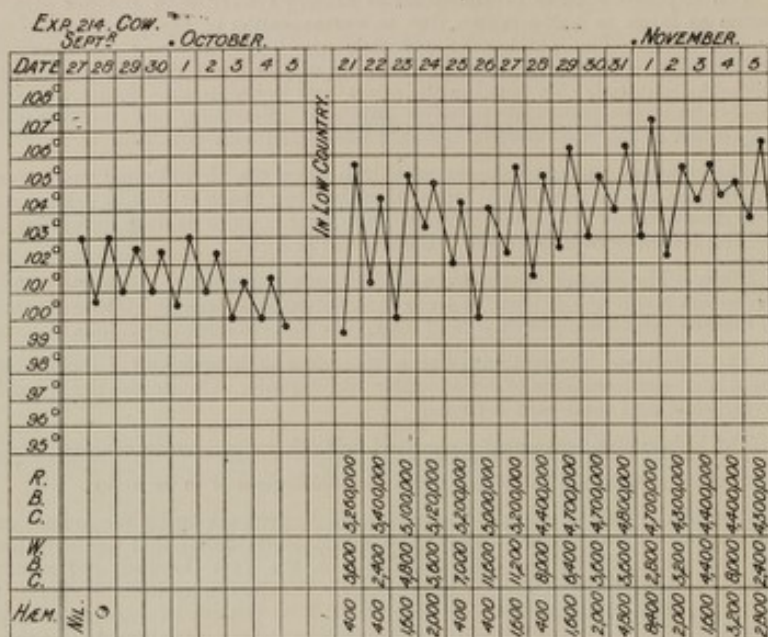 EXP. 214. COW.
SEPTR. OCTOBER. NOVEMBER.
DATE 27 28 29 30 1 2 3 4 5 21 22 23 24 25 26 27 28 29 30 31 1 2 3 4 5
108°
107°
106°
105°
104°
103°
102°
101°
100°
99°
98°
97°
96°
95°
IN LOW COUNTRY.
R. B. C. 5,400,000 5,100,000 5,120,000 5,200,000 5,200,000 4,400,000 4,700,000 4,700,000 4,800,000 4,700,000 4,300,000 4,400,000 4,400,000 4,500,000
W. B. C. 2,400 4,800 7,000 11,600 11,200 8,000 6,400 2,800 4,400 2,400
HÆM. NIL. 400 400 1,600 2,000 400 400 1,600 400 1,600 2,000 4,800 8,400 2,000 1,600 3,200